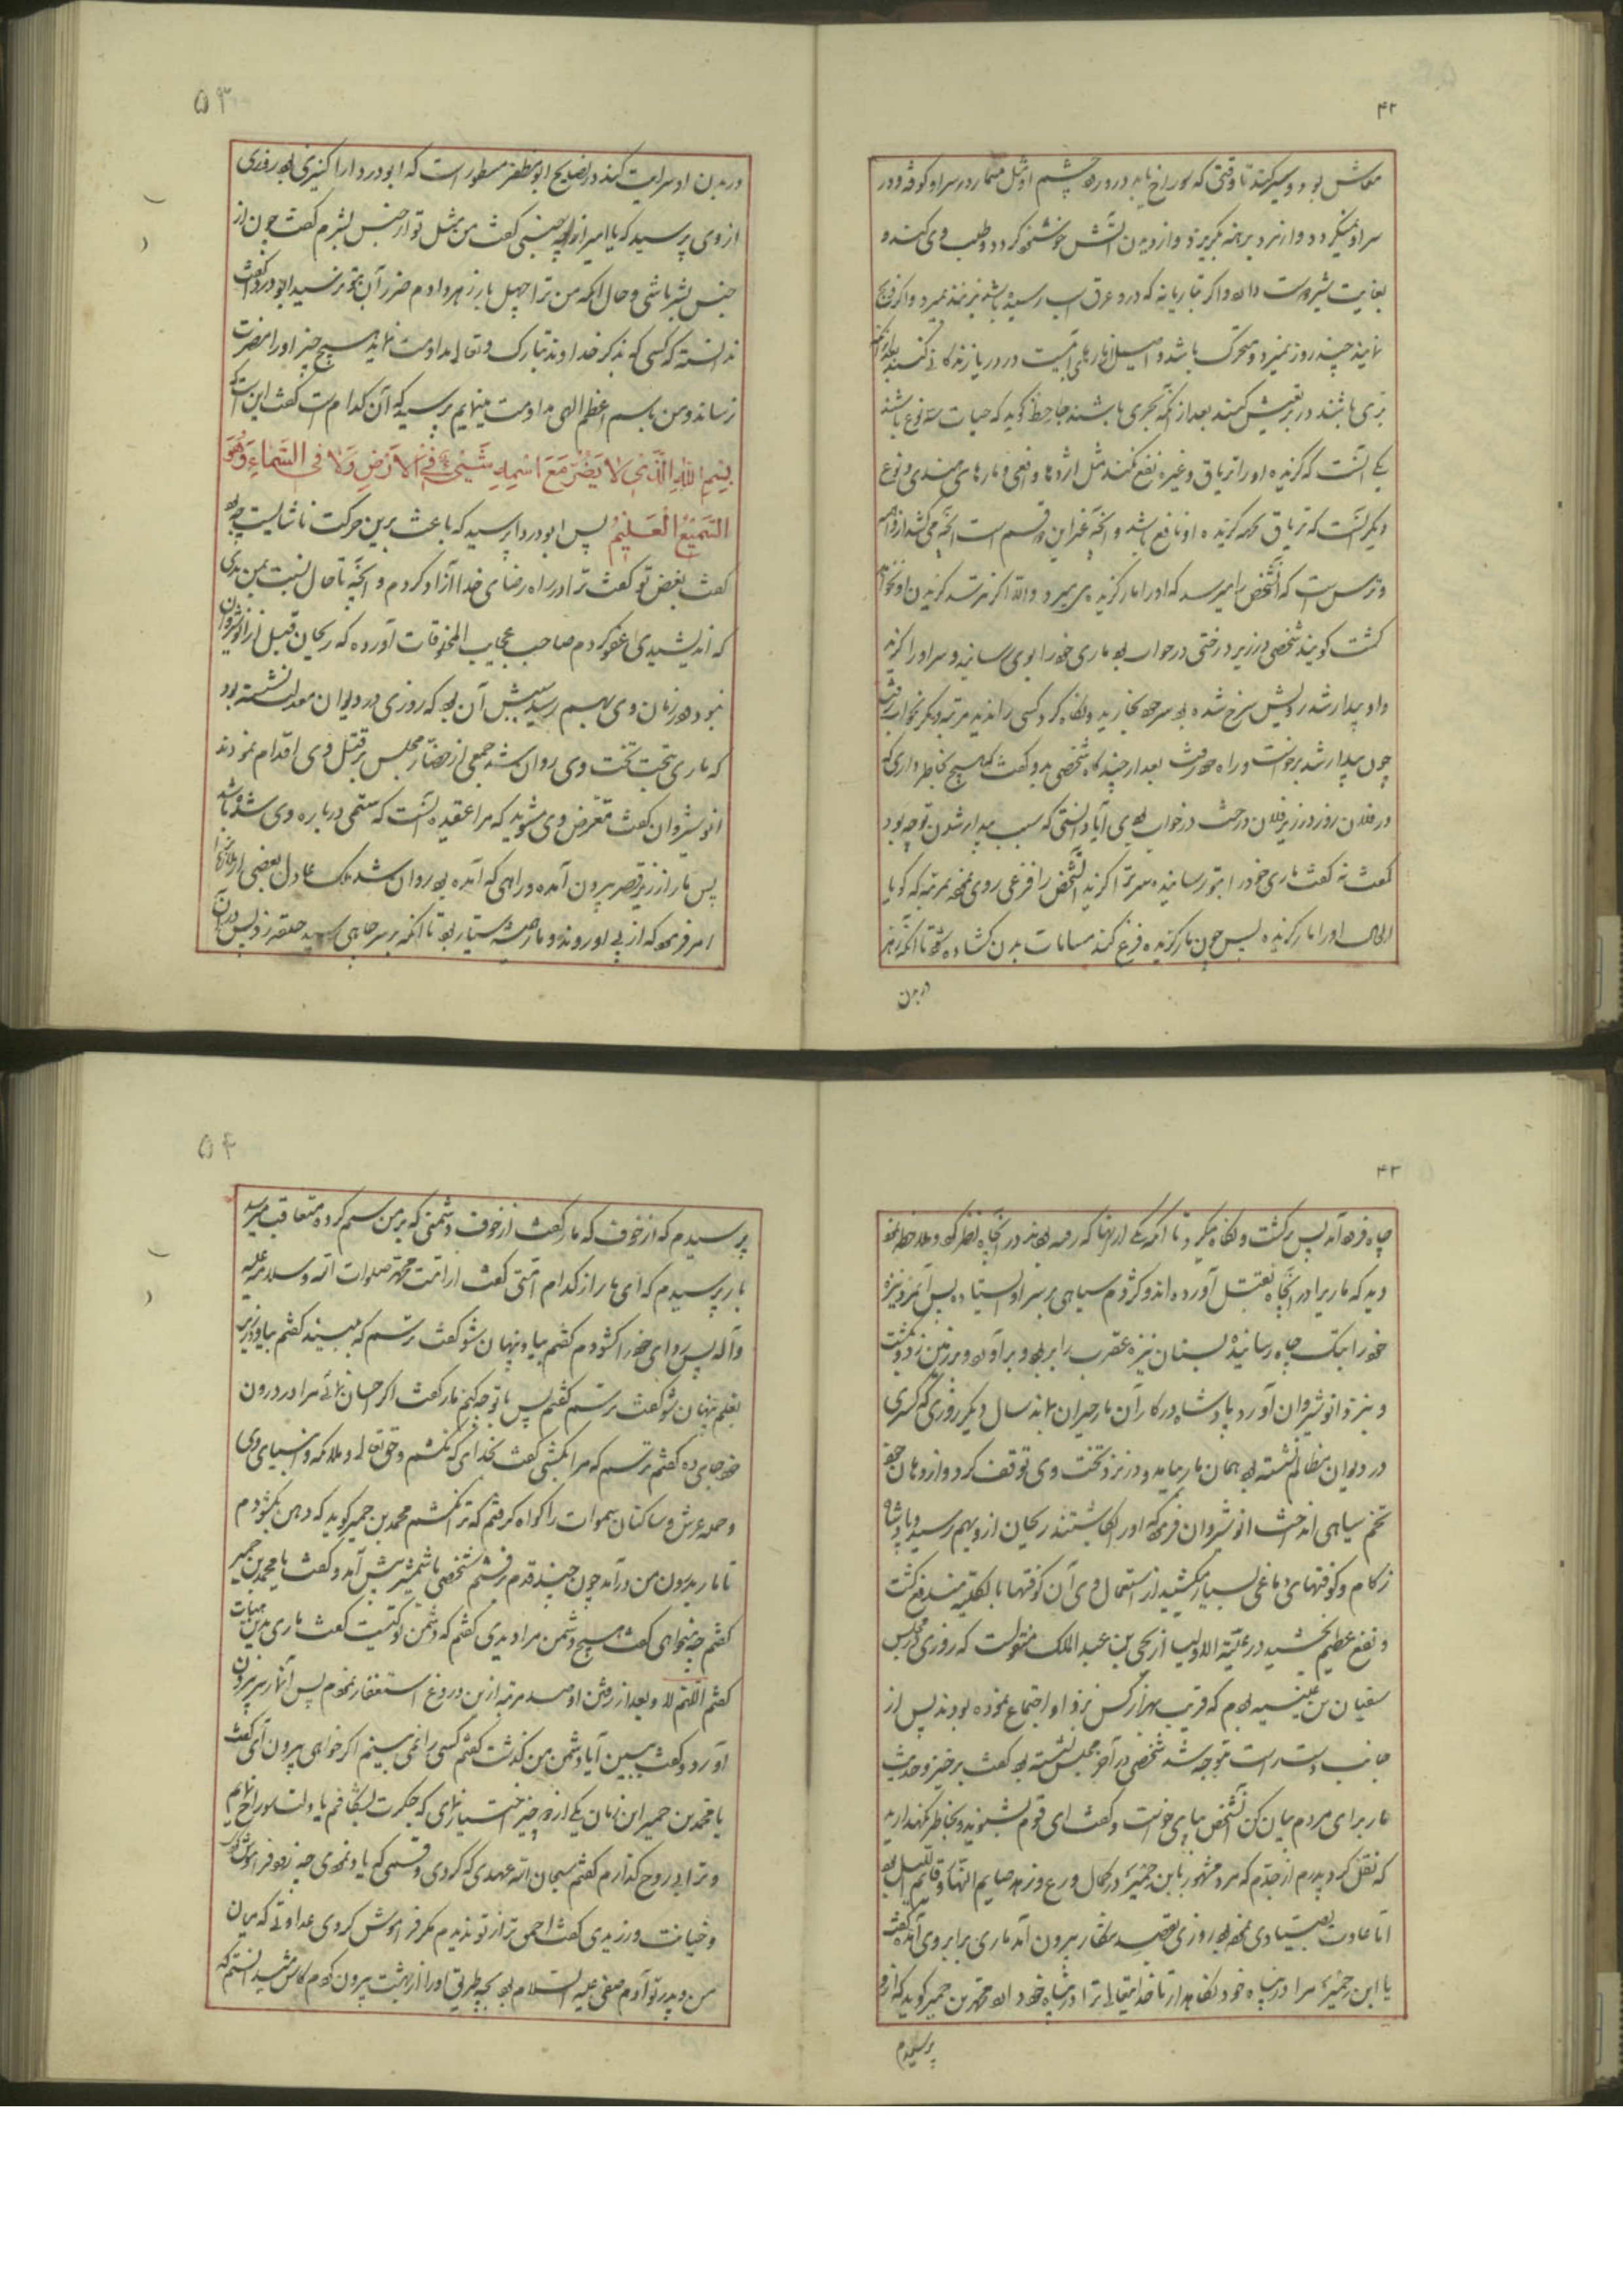 ۴۲
سر او میکردد و از مرد برهنه بگریزد و از دیدن آتش خوشنود کردد و طلب وی کند و
نمایند چند روز نمیرد و متحرک باشد و اصل مارهای آبیست در دریا زندگانی کنند
بری باشند در بر تعیش کنند بعد از آنکه بحری باشند جاحظ کوید که حیات سه نوع باشند
یکی آنست که کزیده او را تریاق و غیره نفع نکند مثل اژدها و افعی و مارهای هندی و نوع
دیکر آنست که تریاق بهر کزیده او نافع باشد و آنچه غیر این دو قسم است آنچه می کشد از واهمه
و ترس است که آنشخص را میرسد که او را مار کزیده می میرد والله اکر نترسد کزیدن او نخواهد
کشت کویند شخصی در زیر درختی در خواب بود ماری خود را بوی رسانیده سر او را کزید
و او بیدار شد رویش سرخ شده بود سر خود بخارید و نگاه کرد کسی را ندید مرتبه دیکر بخواب رفت
چون بیدار شد برخواست و راه خود رفت بعد از چند کاه شخصی بدو کفت که هیچ بخاطر داری که
در فلان روز در زیر فلان درخت در خواب بودی آیا دانستی که سبب بیدار شدن تو چه بود
کفت نه کفت ماری خود را بتو رسانیده سر ترا کزید آنشخص را فزعی روی نمود بمرتبه که کویا
الحال او را مار کزیده پس چون مار کزیده فزع کند مسامات بدن کشاده شود تا آنکه زهر
در بدن
۵۳
در بدن او سرایت کند در نصایح ابو مظفر مسطور است که ابو دردا را کنیزی بود روزی
از وی پرسید که یا امیر از چه جنسی کفت من مثل تو از جنس بشرم کفت چون از
جنس بشر باشی و حال آنکه من ترا چهل بار زهر دادم ضرر آن بتو نرسید ابو دردا کفت
ندانسته که کسی که بذکر خداوند تبارک و تعالی مداومت نماید هیچ چیز او را مضرت
نرساند و من باسم اعظم الهی مداومت مینمایم پرسید که آن کدام است کفت این است که
بِسْمِ اللّٰهِ الَّذِي لَا يَضُرُّ مَعَ اسْمِهِ شَيْءٌ فِي الْاَرْضِ وَلَا فِي السَّمَاءِ وَهُوَ
السَّمِيعُ الْعَلِيمُ پس ابو دردا پرسید که باعث برین حرکت ناشایست چه بود
کفت بغض تو کفت ترا در راه رضای خدا آزاد کردم و آنچه تا حال نسبت بمن بدی
که اندیشیدی عفو کردم صاحب عجایب المخلوقات آورده که ریحان قبل از انوشیروان
نبود در زمان وی بهم رسید سببش آن بود که روزی در دیوان معدلت نشسته بود
که ماری بتحت تخت وی روان شد جمعی از حضار مجلس بر قتل وی اقدام نمودند
انوشیروان کفت متعرض وی مشوید که مرا عقیده آنست که ستمی درباره وی شده باشد
پس مار از زیر قصر بیرون آمده و راهی که آمده بود روان شد ملک عادل بعضی از ملازمان را
امر فرمود که از پی او روند و مار همیشه دستیار بود تا آنکه بر سر چاهی رسید حلقه زد پس در آن
۴۳
چاه فرود آمد پس برکشت و نگاه میکرد تا آنکه یکی از آنها که رفته بودند در آنچاه نظر کرد و ملاحظه نمود
دید که ماریرا در آنچاه بقتل آورده اند و کژدم سیاهی بر سر او ایستاده پس آنمرد نیزه
خود را بتک چاه رسانیده بسنان نیزه عقرب را بربود و برآورد و بر زمین زد و بکشت
و بنزد انوشیروان آورد پادشاه در کار آن مار حیران بماند سال دیکر روزی که کسری
در دیوان مظالم نشسته بود همان مار بیامد و در نزد تخت وی توقف کرد و از دهان خود
تخم سیاهی انداخت انوشیروان فرمود که او را کاشتند ریحان ازو بهم رسید و پادشاه
زکام و کوفتهای دماغی بسیار میکشید از استعمال وی آن کوفتها بالکلیه مندفع کشت
و نفع عظیم بخشید در حلیة الاولیا از یحیی بن عبد الملک منقولست که روزی در مجلس
سفیان بن عیینه بودم که قریب بهزار کس نزد او اجتماع نموده بودند پس از
جانب دست راست متوجه شد شخصی در آخر مجلس نشسته بود کفت برخیز و حدیث
مار برای مردم بیان کن آنشخص بپای خواست و کفت ای قوم بشنوید و بخاطر نگهدارید
که نقل کرد پدرم از جدم که مرد مشهور بابن حمیر در کمال ورع و زهد صایم النهار و قایم اللیل بود
اما عادت بصیادی نموده بود روزی بقصد شکار بیرون آمد ماری برابر وی آمده کفت
یا ابن حمیر مرا در پناه خود نگاهدار تا خدایتعالی ترا در پناه خود دارد محمد بن حمیر کوید که ازو
پرسیدم
۵۴
پرسیدم که از خوف که مار کفت از خوف دشمنی که بر من ستم کرده متعاقب میرسد
باز پرسیدم که ای مار از کدام امتی کفت از امت محمد صلوات الله و سلامه علیه
و آله پس ردای خود را کشودم کفتم بیا و پنهان شو کفت ترسم که ببیند کفتم بیا و در زیر
بغلم پنهان شو کفت ترسم کفتم پس با تو چه کنم مار کفت اکر احسان نمائی مرا در درون
خود جای ده کفتم ترسم که مرا بکشی کفت بخدای که نکشم و حق تعالی و ملائکه و انبیای وی
و حمله عرش و ساکنان سموات را کواه کرفتم که ترا نکشم محمد بن حمیر کوید که دهن بکشودم
تا مار بدرون من درآمد چون چند قدم برفتم شخصی با شمشیر پیش آمد و کفت یا محمد بن حمیر
کفتم چه میخواهی کفت هیچ دشمن مرا دیدی کفتم که دشمن تو کیست کفت ماری بدین هیأت
کفتم اللهم لا و بعد از رفتن او صد مرتبه ازین دروغ استغفار نمودم پس آنمار سر بیرون
آورد و کفت ببین آیا دشمن من کذشت کفتم کسی را نمی بینم اکر خواهی بیرون آی کفت
یا محمد بن حمیر این زمان یکی از دو چیز اختیار نمای که جکرت بشکافم یا دلت سوراخ نمایم
و ترا بی روح کذارم کفتم سبحان الله عهدی که کردی و قسمی که یاد نمودی چه زود فراموش کردی
و خیانت ورزیدی کفت احمق تر از تو ندیدم مکر فراموش کردی عداوتی که میان
من و پدر تو آدم صفی علیه السلام بود بچه طریق او را از بهشت بیرون کردم